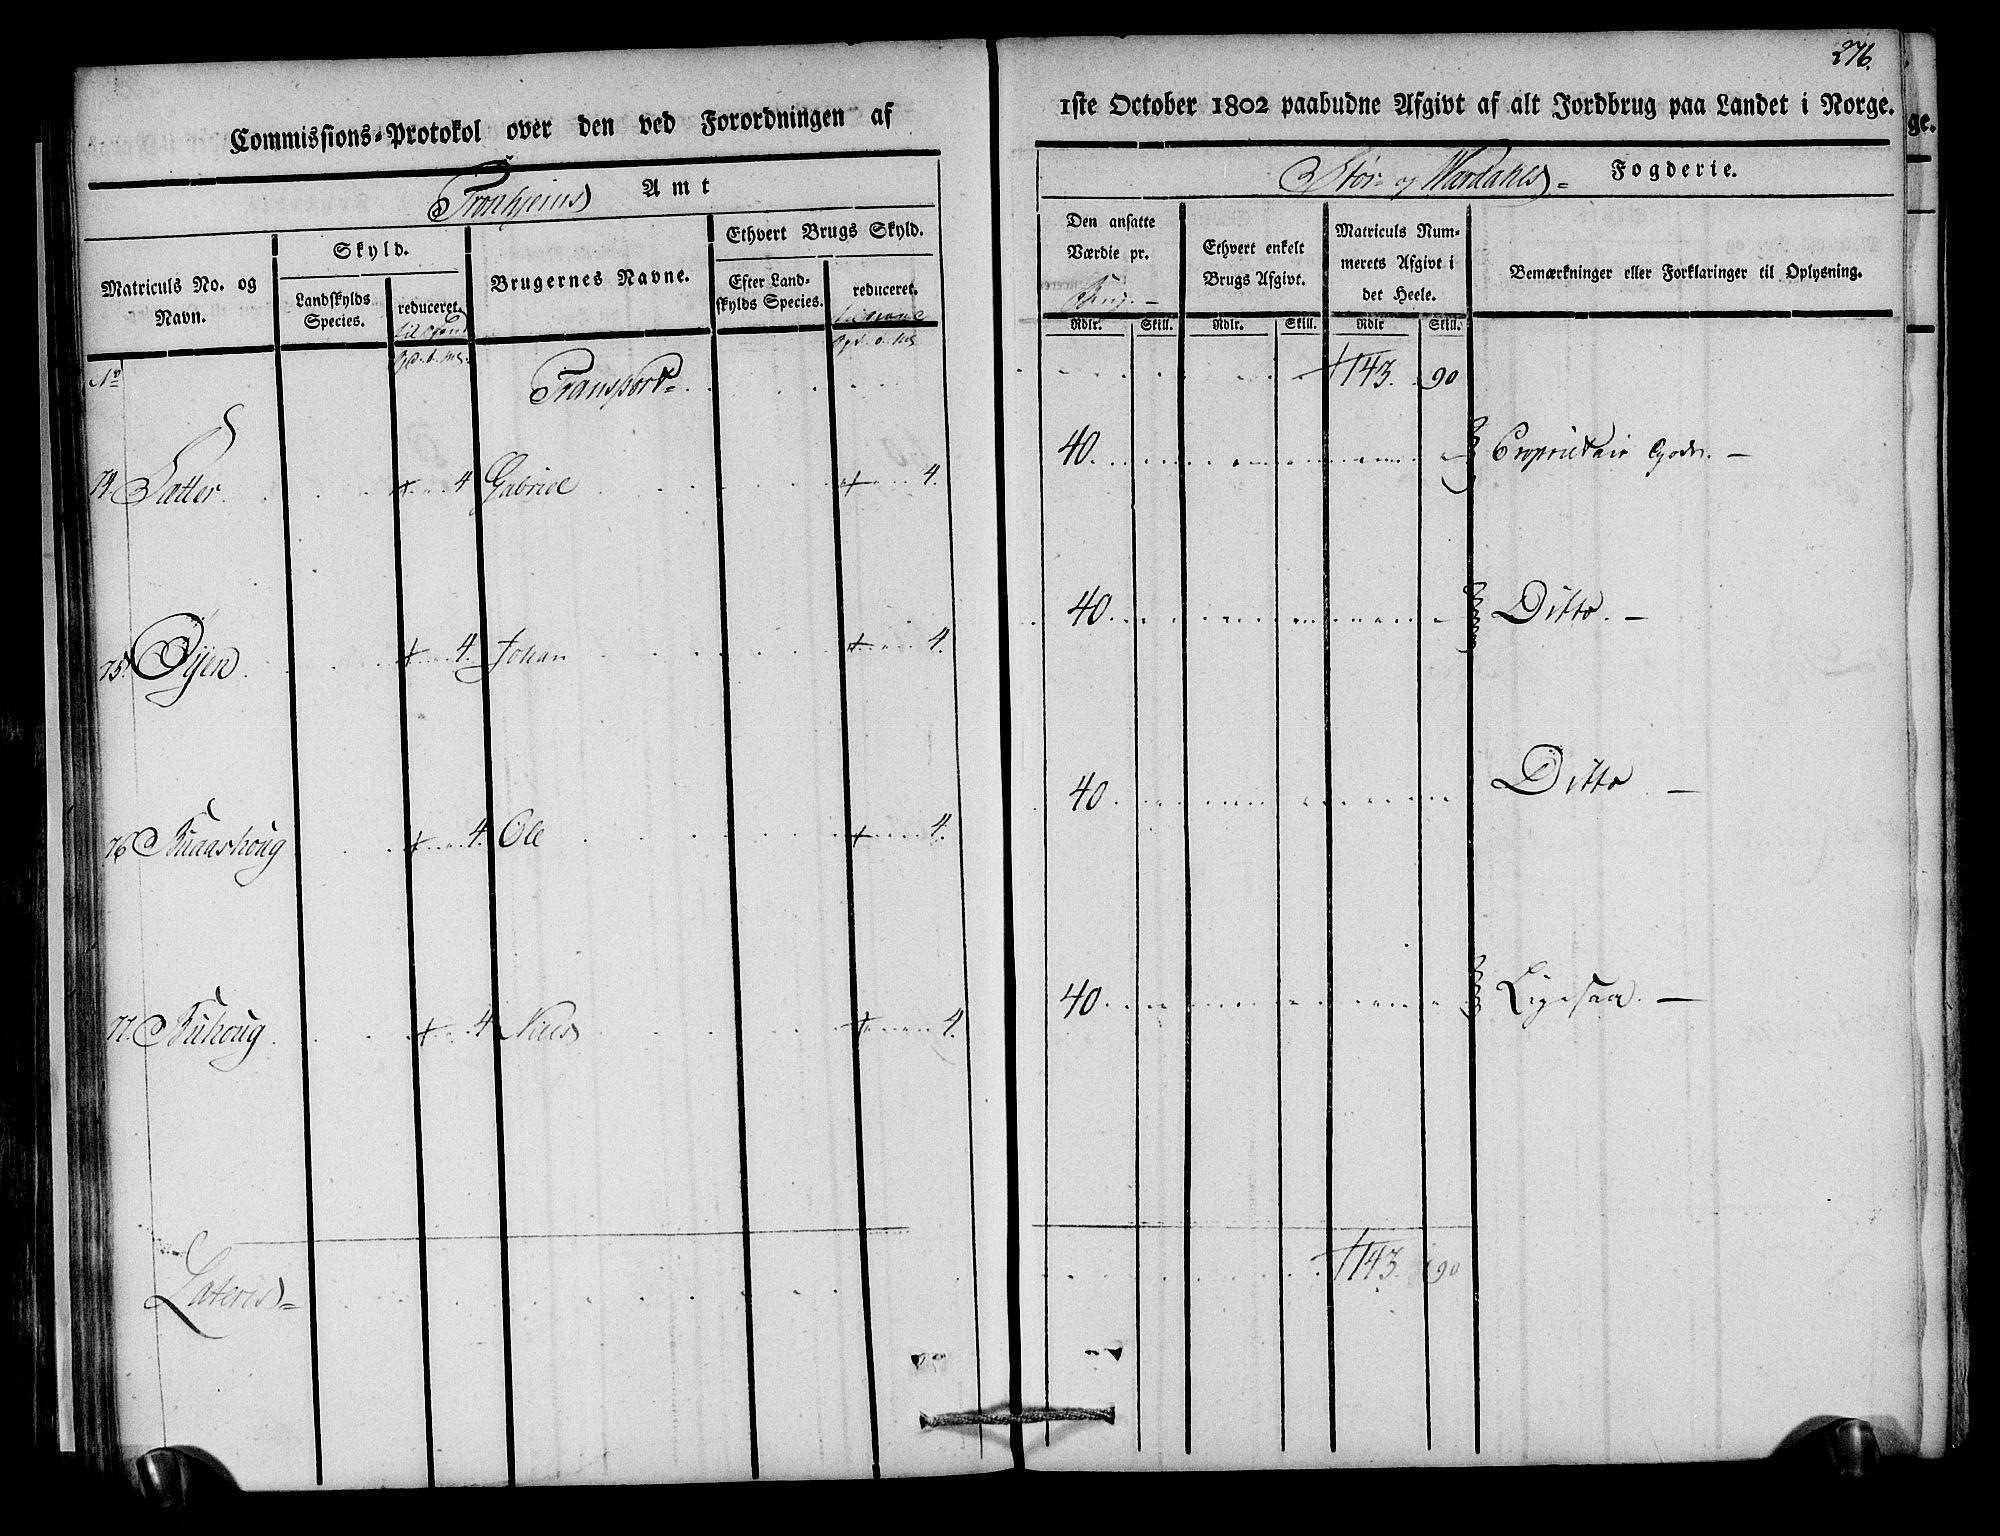 276.
Commissions-Protokol over den ved Forordningen af
1ste October 1802 paabudne Afgivt af alt Jordbrug paa Landet i Norge.
Tronhjems Amt
Stør- og Werdahls Fogderie.
Matriculs No. og Navn.
Skyld.
Landskylds Species.
reduceret.
Brugernes Navne.
Ethvert Brugs Skyld.
Efter Landskylds Species.
reduceret.
Den ansatte Værdie pr.
Ethvert enkelt Brugs Afgivt.
Matriculs Nummerets Afgivt i det Heele.
Bemærkninger eller Forklaringer til Oplysning.
Rdlr. Skill. Rdlr. Skill. Rdlr Skill.
No Transport 143. 90
74. Sætter. 4 Gabriel 4. 40 Proprietair Gods.
75. Øijen 4. Johan 4. 40 Ditto.
76 4. Ole 4. 40 Ditto
77. 4 Niels 4. 40 Ligesaa.
Lateris 143. 90